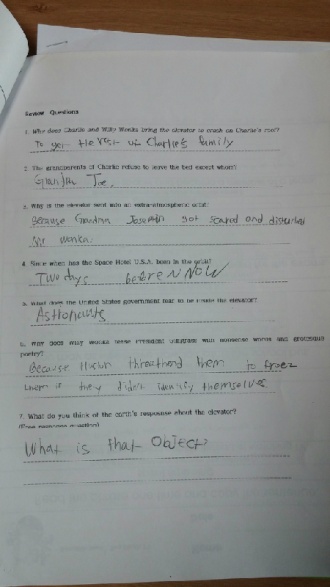 Review Questions
1. Why does Charlie and Willy Wonka bring the elevator to crash on Charlie's roof?
To get the rest of Charlie's family
2. The grandparents of Charlie refuse to leave the bed except whom?
Grandpa Joe.
3. Why is the elevator sent into an extra-atmospheric orbit?
Because Grandma Josephin got scared and disturbed
Mr wonka.
4. Since when has the Space Hotel U.S.A. been in the orbit?
Two days before N NOW
5. What does the United States government fear to be inside the elevator?
Astronauts
6. Why does Willy Wonka tease President with nonsense words and grotesque
poetry?
Because threatend them to
they didn't identify themselves
7. What do you think of the earth's response about the elevator?
What is that Object